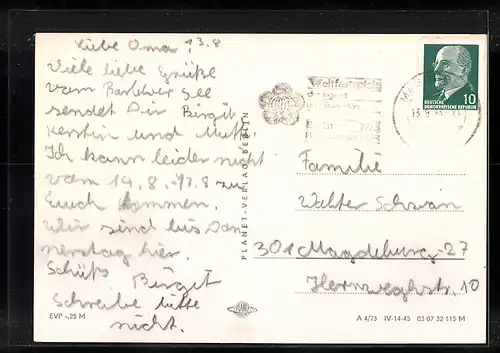 Liebe Oma! 13.8
Viele liebe Grüße
vom Barleber See
sendet Dir Birgit
Kerstin und Mutti.
Ich kann leider nicht
vom 19.8. - 17.8 zu
Euch kommen.
Wir sind bis Don
nerstag hier.
Schüß Birgit
Schreibe bitte
nicht.
EVP -,25 M
PLANET-VERLAG BERLIN
PLANET
Weltfestspiele
Berlin 1973
DEUTSCHE
DEMOKRATISCHE REPUBLIK
10
Familie
Walter Schwan
301 Magdeburg-27
Herweghstr. 10
A 4/73 IV-14-45 03 07 32 115 M